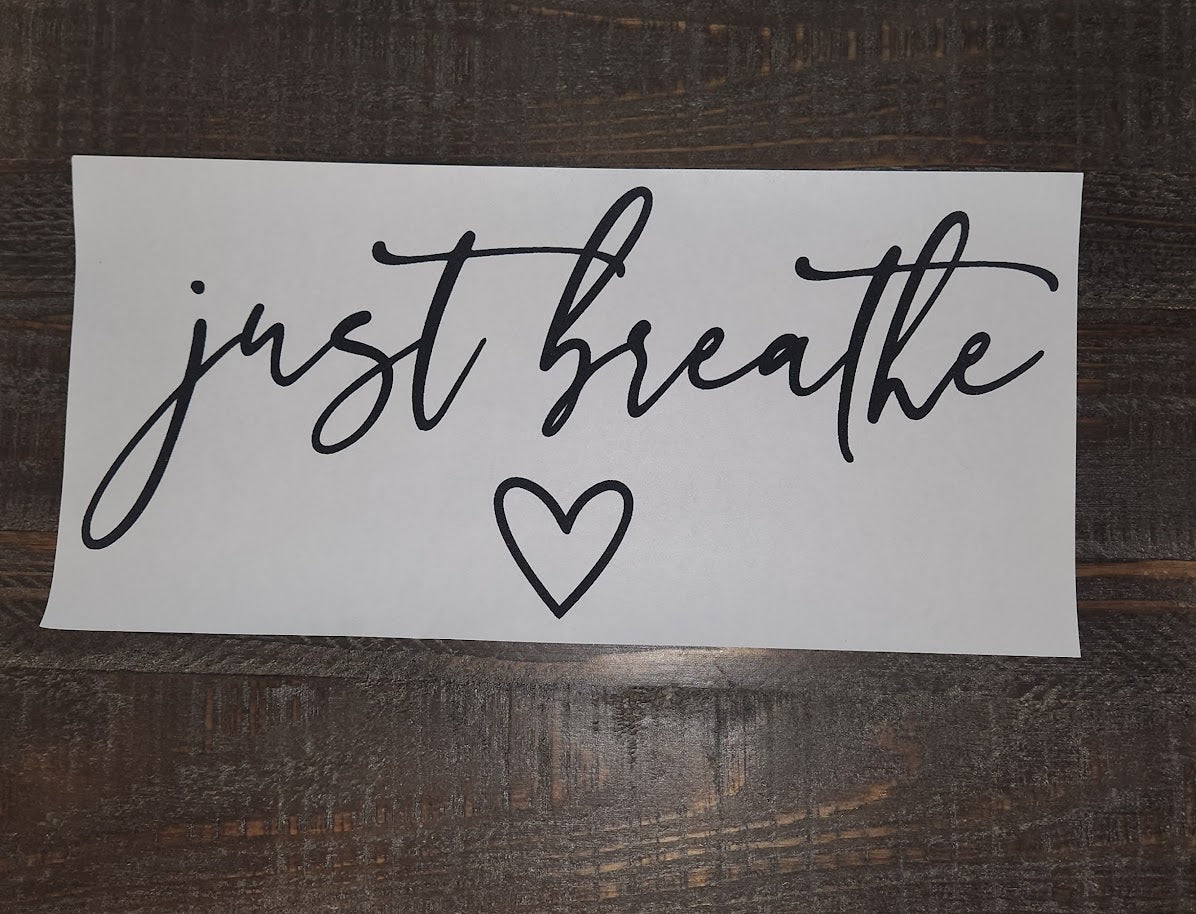 just breathe